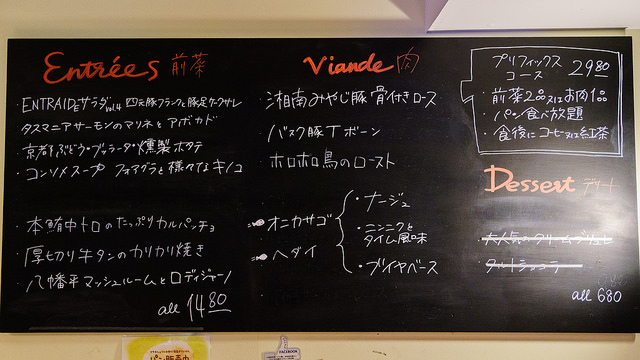 Entrées 前菜
・ENTRAIDEサラダ vol.4 四元豚フランクと豚足ケークサレ
タスマニアサーモンのマリネとアボカド
京都ぶどう・ブッラータ・燻製ホタテ
・コンソメスープ フォアグラと様々なキノコ
・本鮪中トロのたっぷりカルパッチョ
厚切り牛タンのカリカリ焼き
・八幡平マッシュルームとロディジャーノ
all 1480
Viande 肉
・湘南みやじ豚 骨付きロース
バスク豚Tボーン
ホロホロ鳥のロースト
オニカサゴ
ヘダイ
・ナージュ
・ニンニクと
タイム風味
・ブイヤベース
プリフィックス
コース 2980
・前菜2品又はお肉1品
・パン食べ放題
・食後にコーヒー又は紅茶
Dessert デザート
・大人気のクリームブリュレ
・タルトショコラ
all 680
FACEBOOK
パン販売中